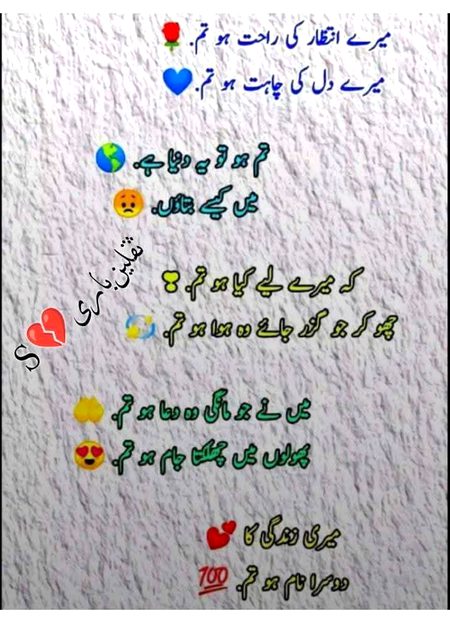 میرے انتظار کی راحت ہو تم. 🌹
میرے دل کی چاہت ہو تم. 💙
تم ہو تو یہ دنیا ہے. 🌎
میں کیسے بتاؤں. 😟
کہ میرے لیے کیا ہو تم. ❣
چھو کر جو گزر جائے وہ ہوا ہو تم. 💫
میں نے جو مانگی وہ دعا ہو تم. 🤲
پھولوں میں چھلکتا جام ہو تم. 😍
میری زندگی کا 💕
دوسرا نام ہو تم. 💯
ثقلین یاری
S💔